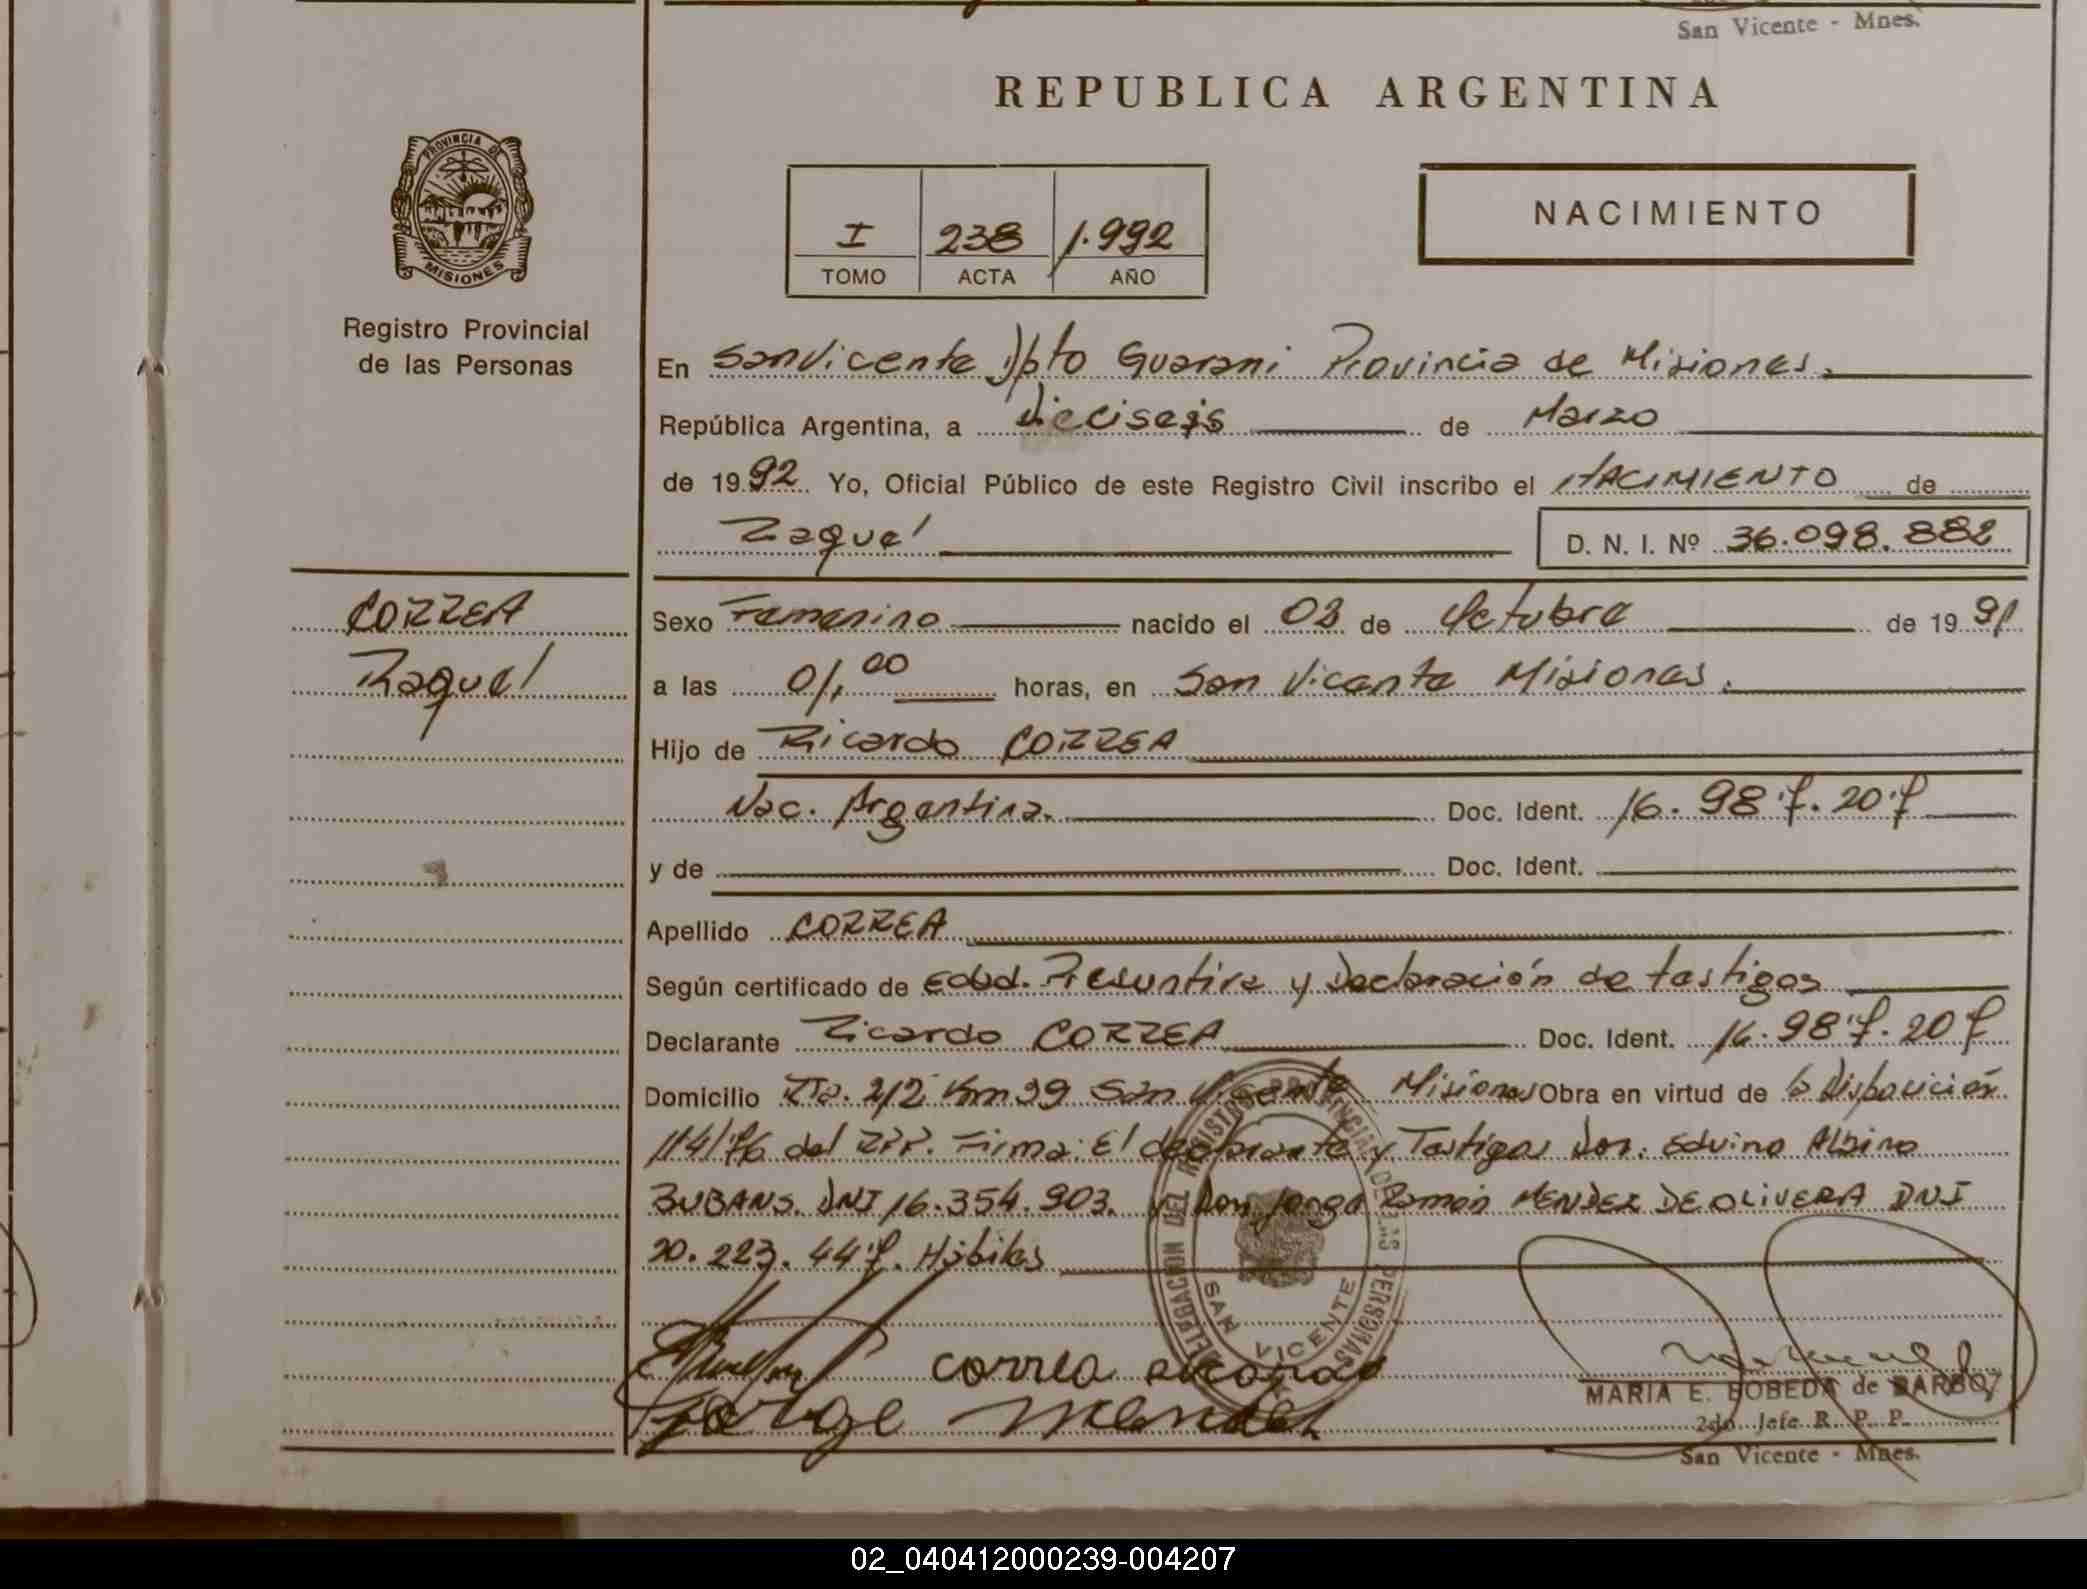 San Vicente - Mnes.
REPUBLICA ARGENTINA
PROVINCIA DE
MISIONES
Registro Provincial
de las Personas
I 238 1.992
TOMO ACTA AÑO
NACIMIENTO
En San Vicente Dpto Guarani Provincia de Misiones.
República Argentina, a Dieciseis de Marzo
de 1992 Yo, Oficial Público de este Registro Civil inscribo el NACIMIENTO de
Raquel D. N. I. Nº 36.098.882
CORREA
Raquel
Sexo Femenino nacido el 03 de Octubre de 1991
a las 01,00 horas, en San Vicente Misiones.
Hijo de Ricardo CORREA
Nac. Argentina. Doc. Ident. 16.987.207
y de Doc. Ident.
Apellido CORREA
Según certificado de edad. Presuntiva y Declaración de testigos
Declarante Ricardo CORREA Doc. Ident. 16.987.207
Domicilio Rta. 212 Km 39 San Vicente Misiones Obra en virtud de la Disposición
114/76 del RPP. Firma: El declarante y Testigos Don: Edvino Albino
BUBANS. DNI 16.354.903. y Don Jorge Ramón MENDEZ DE OLIVERA DNI
20.223.447. Hábiles
DELEGACION DEL REGISTRO PROVINCIAL DE LAS PERSONAS
SAN VICENTE
correa ricardo
Jorge Mendez
MARIA E. BOBEDA de BARBOZ
2do. Jefe R. P. P.
San Vicente - Mnes.
02_040412000239-004207